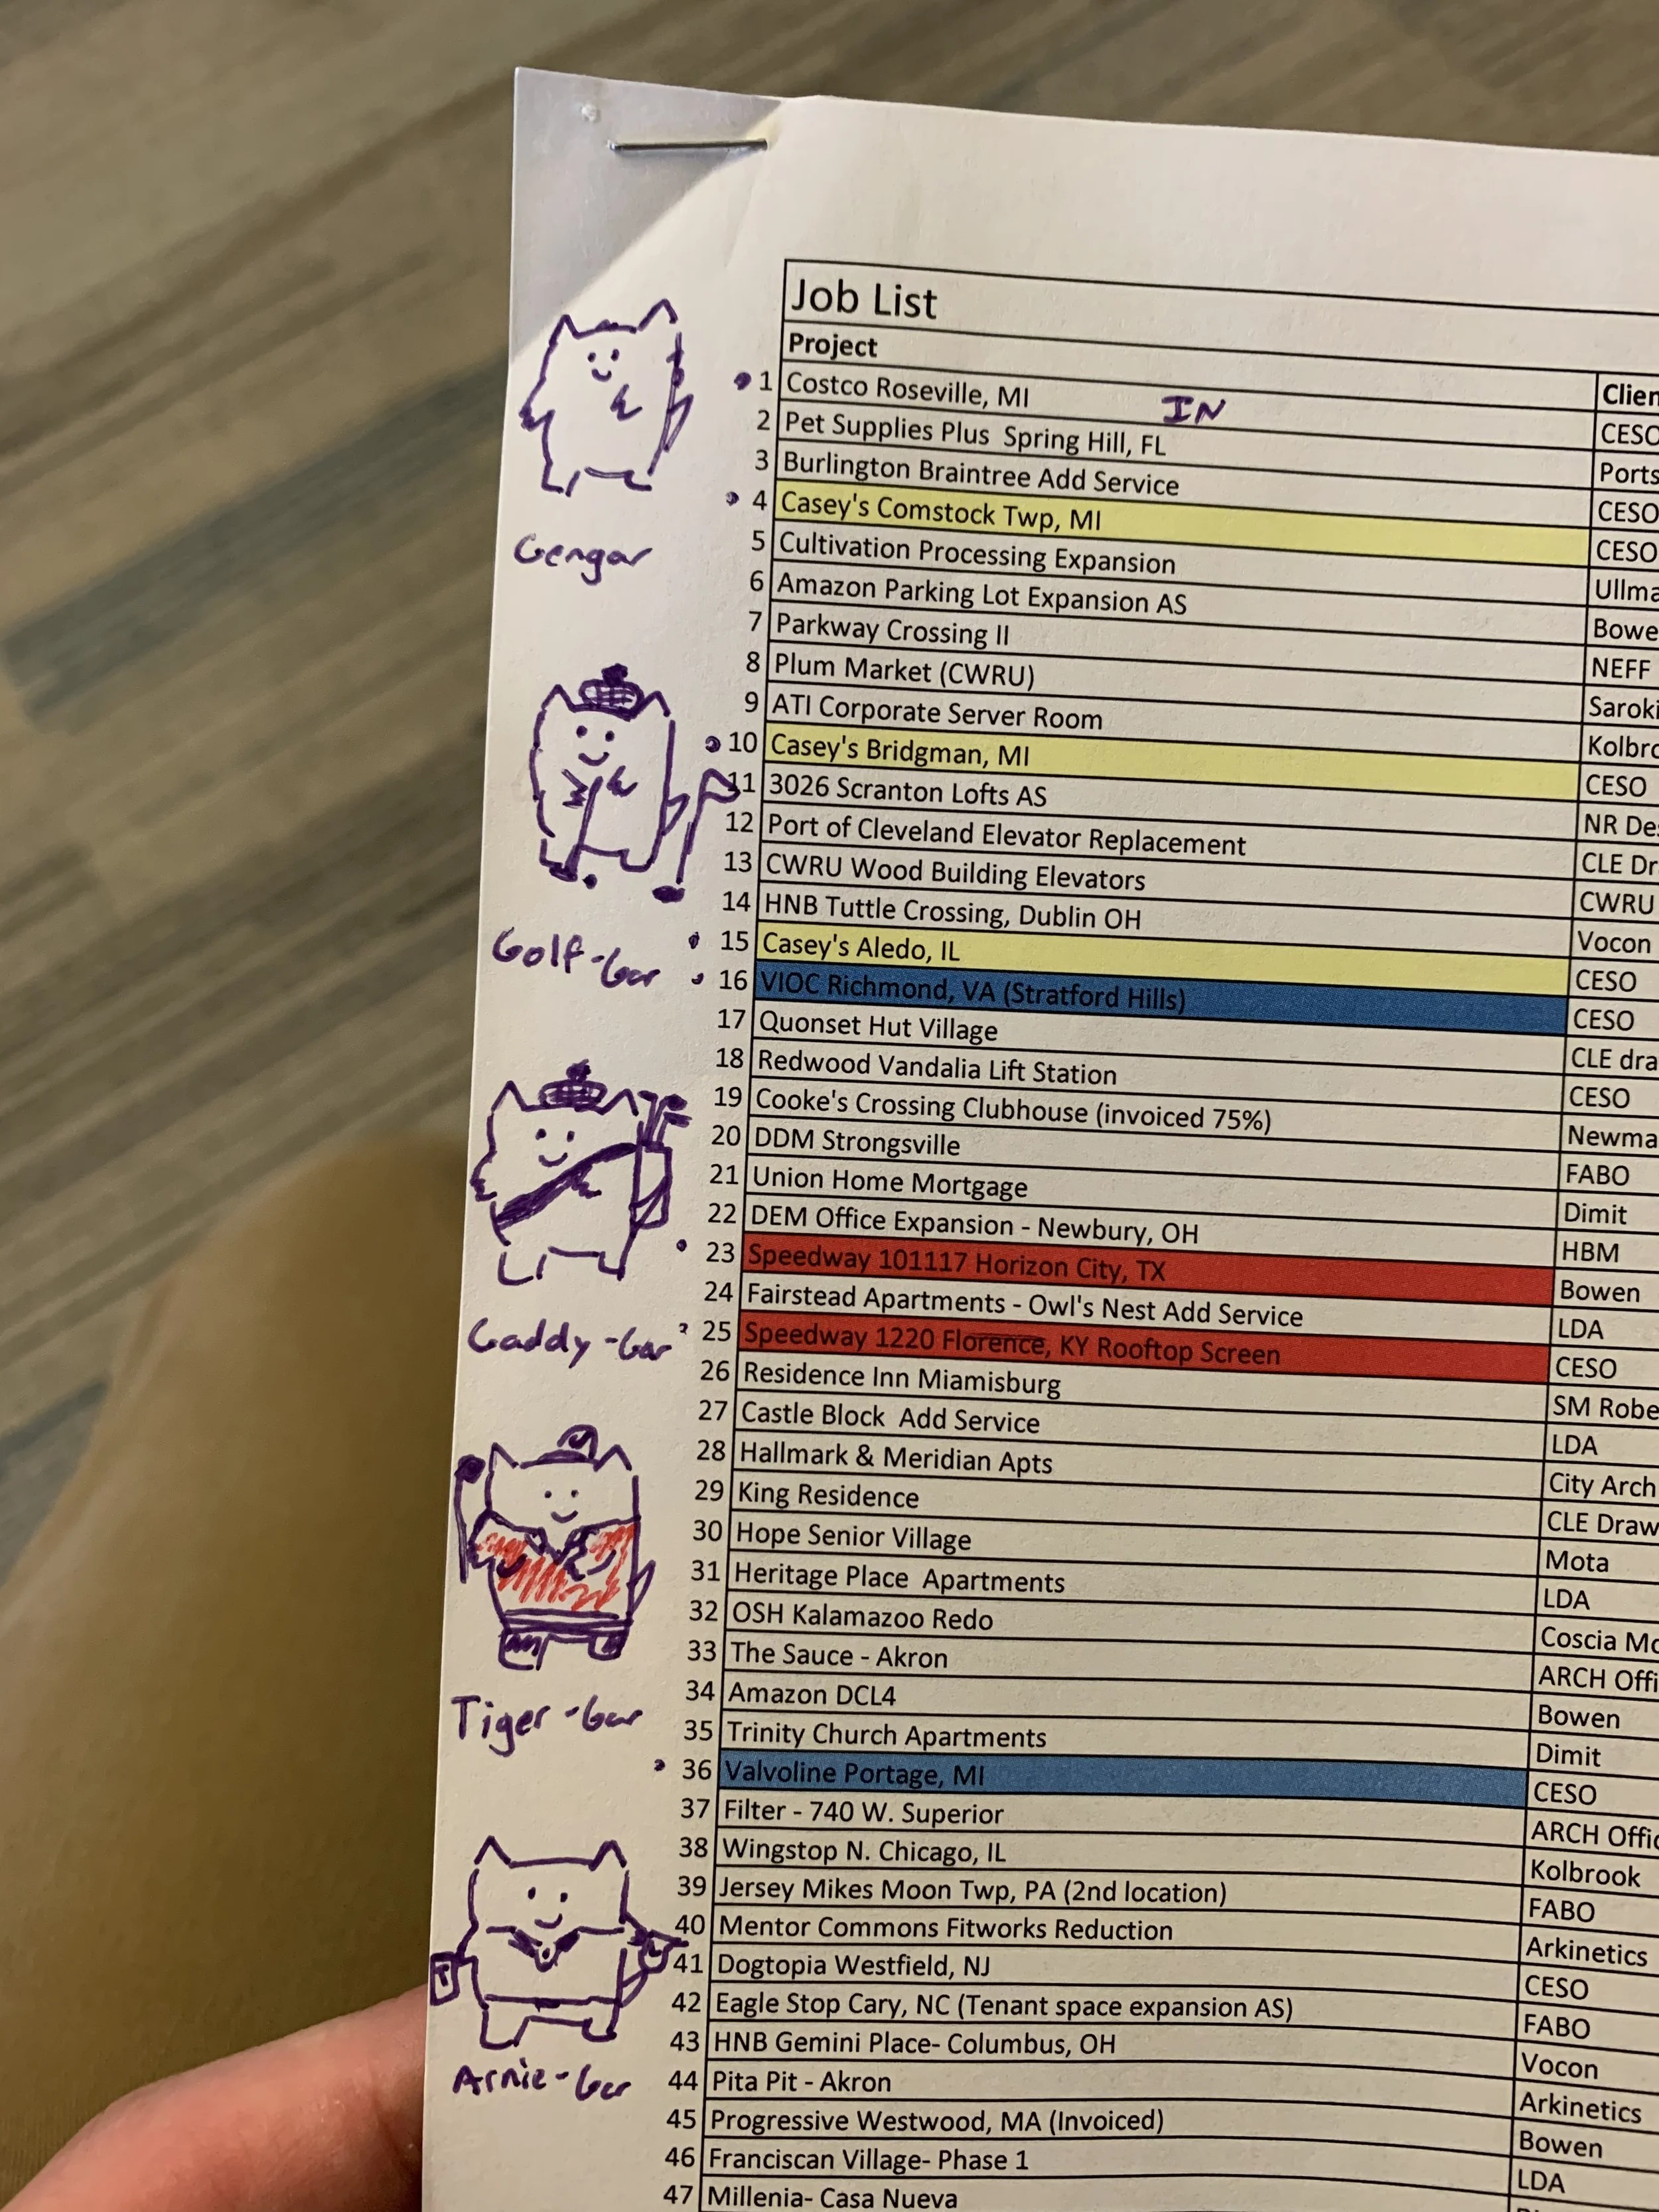 Job List
Project Clien
1 Costco Roseville, MI IN CESO
2 Pet Supplies Plus Spring Hill, FL Ports
3 Burlington Braintree Add Service CESO
4 Casey's Comstock Twp, MI CESO
5 Cultivation Processing Expansion Ullma
6 Amazon Parking Lot Expansion AS Bowe
7 Parkway Crossing II NEFF
8 Plum Market (CWRU) Saroki
9 ATI Corporate Server Room Kolbro
10 Casey's Bridgman, MI CESO
11 3026 Scranton Lofts AS NR De
12 Port of Cleveland Elevator Replacement CLE Dr
13 CWRU Wood Building Elevators CWRU
14 HNB Tuttle Crossing, Dublin OH Vocon
15 Casey's Aledo, IL CESO
16 VIOC Richmond, VA (Stratford Hills) CESO
17 Quonset Hut Village CLE dra
18 Redwood Vandalia Lift Station CESO
19 Cooke's Crossing Clubhouse (invoiced 75%) Newma
20 DDM Strongsville FABO
21 Union Home Mortgage Dimit
22 DEM Office Expansion - Newbury, OH HBM
23 Speedway 101117 Horizon City, TX Bowen
24 Fairstead Apartments - Owl's Nest Add Service LDA
25 Speedway 1220 Florence, KY Rooftop Screen CESO
26 Residence Inn Miamisburg SM Robe
27 Castle Block Add Service LDA
28 Hallmark & Meridian Apts City Arch
29 King Residence CLE Draw
30 Hope Senior Village Mota
31 Heritage Place Apartments LDA
32 OSH Kalamazoo Redo Coscia Mc
33 The Sauce - Akron ARCH Offi
34 Amazon DCL4 Bowen
35 Trinity Church Apartments Dimit
36 Valvoline Portage, MI CESO
37 Filter - 740 W. Superior ARCH Offic
38 Wingstop N. Chicago, IL Kolbrook
39 Jersey Mikes Moon Twp, PA (2nd location) FABO
40 Mentor Commons Fitworks Reduction Arkinetics
41 Dogtopia Westfield, NJ CESO
42 Eagle Stop Cary, NC (Tenant space expansion AS) FABO
43 HNB Gemini Place- Columbus, OH Vocon
44 Pita Pit - Akron Arkinetics
45 Progressive Westwood, MA (Invoiced) Bowen
46 Franciscan Village- Phase 1 LDA
47 Millenia- Casa Nueva
Gengar
Golf-Gar
Caddy-Gar
Tiger-Gar
Arnie-Gar